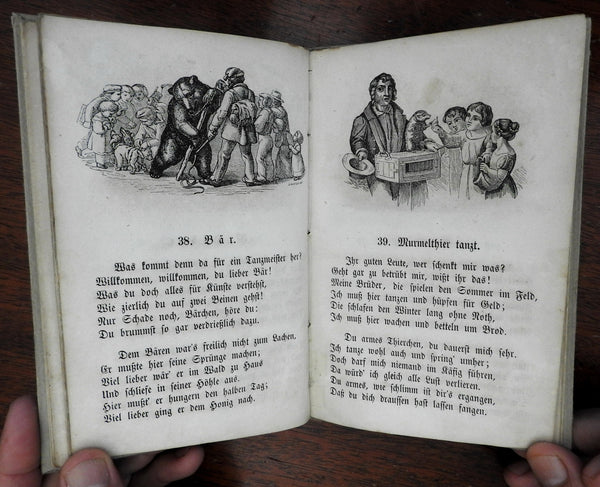 38. Bär.
Was kommt denn da für ein Tanzmeister her?
Willkommen, willkommen, du lieber Bär!
Was du doch alles für Künste verstehst,
Wie zierlich du auf zwei Beinen gehst!
Nur Schade noch, Bärchen, höre du:
Du brummst so gar verdrießlich dazu.
Dem Bären war's freilich nicht zum Lachen,
Er mußte hier seine Sprünge machen;
Viel lieber wär' er im Wald zu Haus
Und schliefe in seiner Höhle aus.
Hier mußt' er hungern den halben Tag;
Viel lieber ging er dem Honig nach.
39. Murmelthier tanzt.
Ihr guten Leute, wer schenkt mir was?
Geht gar zu betrübt mir, wißt ihr das!
Meine Brüder, die spielen den Sommer im Feld,
Ich muß hier tanzen und hüpfen für Geld;
Die schlafen den Winter lang ohne Noth,
Ich muß hier wachen und betteln um Brod.
Du armes Thierchen, du dauerst mich sehr.
Ich tanze wohl auch und spring' umher;
Doch darf mich niemand im Käfig führen,
Da würd' ich gleich alle Lust verlieren.
Du armes, wie schlimm ist dir's ergangen,
Daß du dich draussen hast lassen fangen.